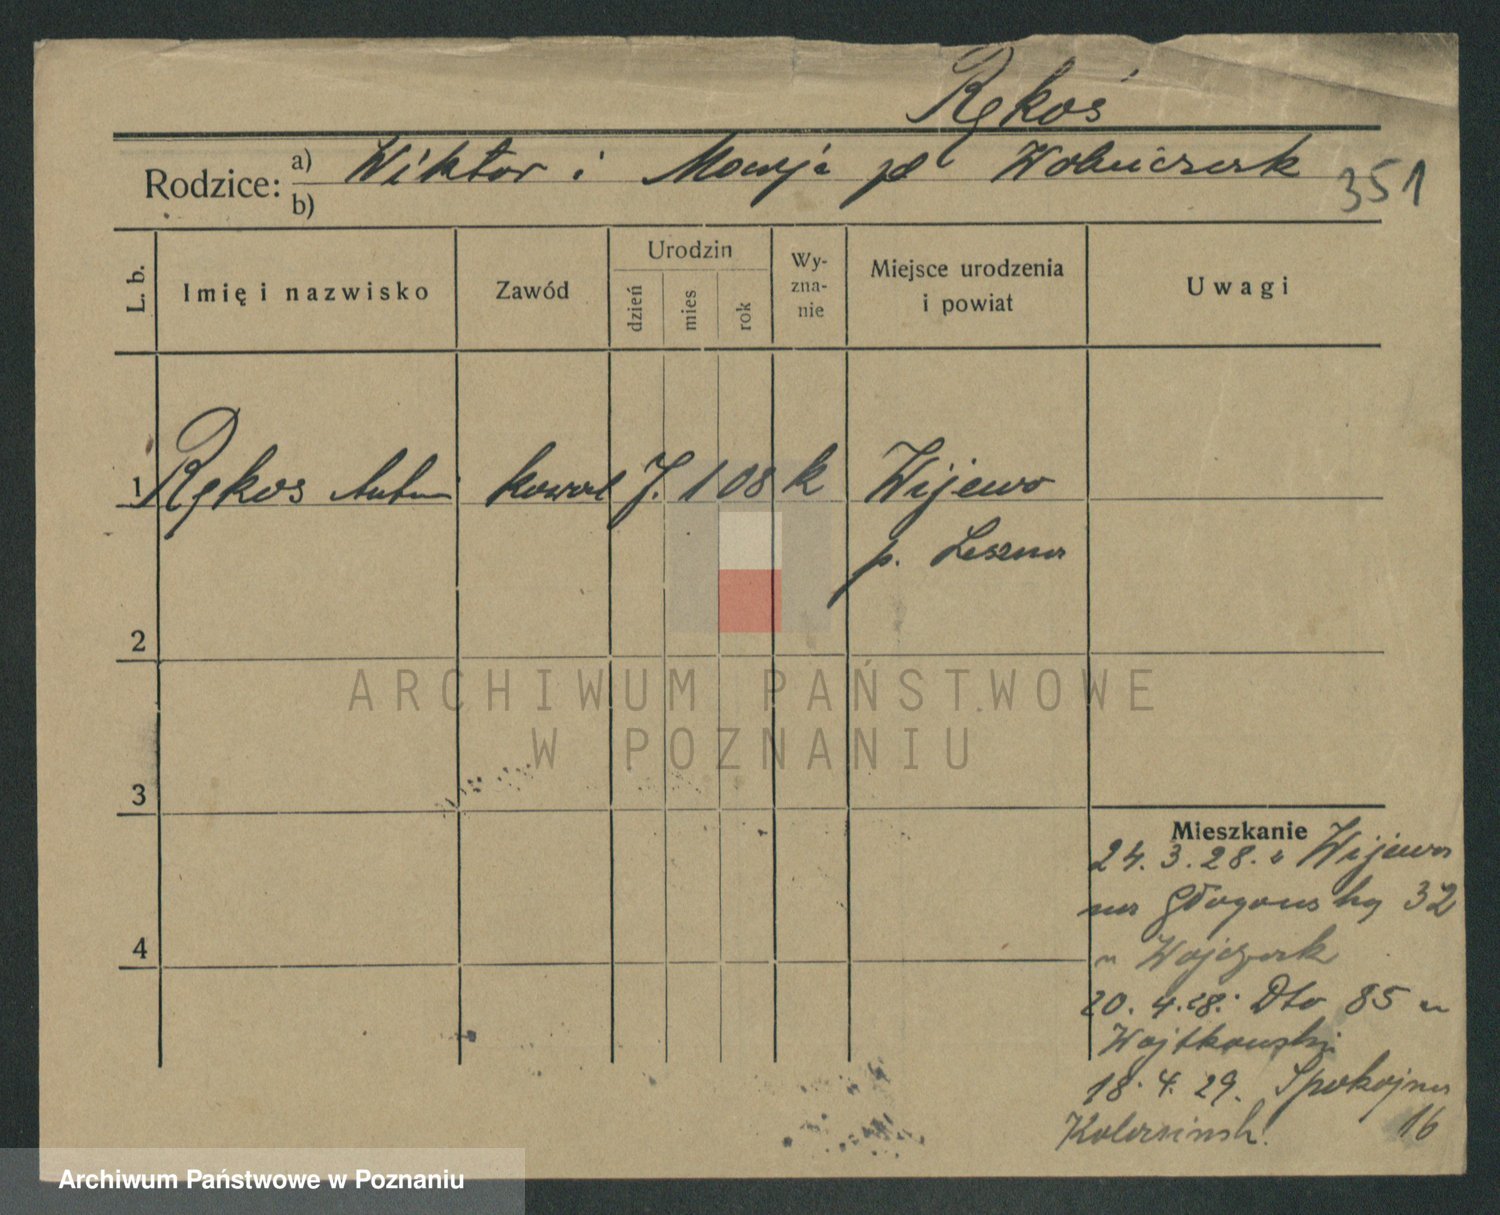 Rękoś
Rodzice: a) Wiktor i Marja zd Wolniczak
b)
351
L. b.
Imię i nazwisko
Zawód
Urodzin
dzień
mies
rok
Wy-
zna-
nie
Miejsce urodzenia
i powiat
Uwagi
1 Rękos kowal 7. 1 08 k Wijewo
p. Leszno
2
ARCHIWUM PAŃSTWOWE
W POZNANIU
3
Mieszkanie
24.3.28. Wijewo
na Głogowską 32
u Wojczak
20.4.28. Dto 85 u
Wojtkowski
4
18.4.29. Spokojna
16
Archiwum Państwowe w Poznaniu